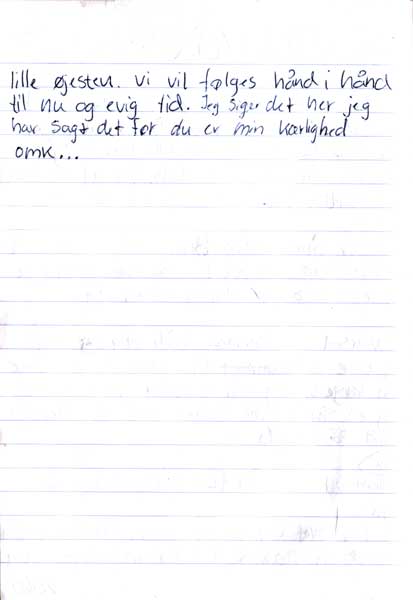 lille øjesten. Vi vil følges hånd i hånd
til nu og evig tid. Jeg siger det her jeg
har sagt det før du er min kærlighed
omk...